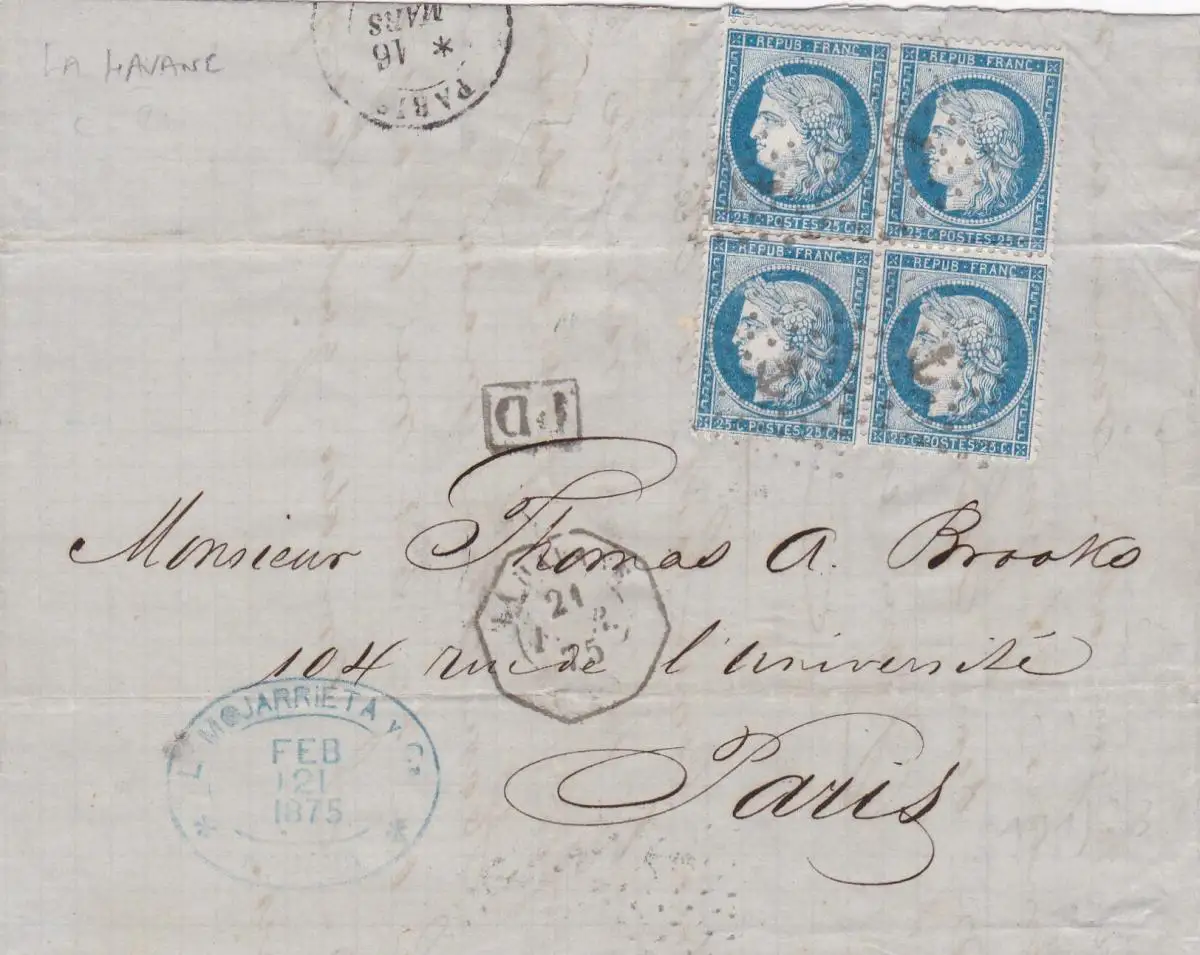 LA HAVANE
PARIS
*
16
MARS
REPUB · FRANC
25·C·POSTES·25·C
REPUB · FRANC
25·C·POSTES·25·C
REPUB · FRANC
25·C·POSTES·25·C
REPUB · FRANC
25·C·POSTES·25·C
PD
Monsieur Thomas A. Brooks
104 rue de l'Université
Paris
21
75
MOJARRIETA Y Ca
FEB
21
1875
* *